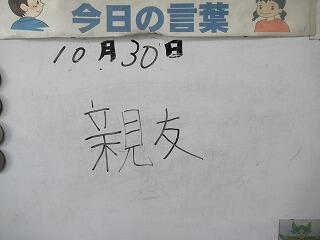 今日の言葉
10月30日
親友